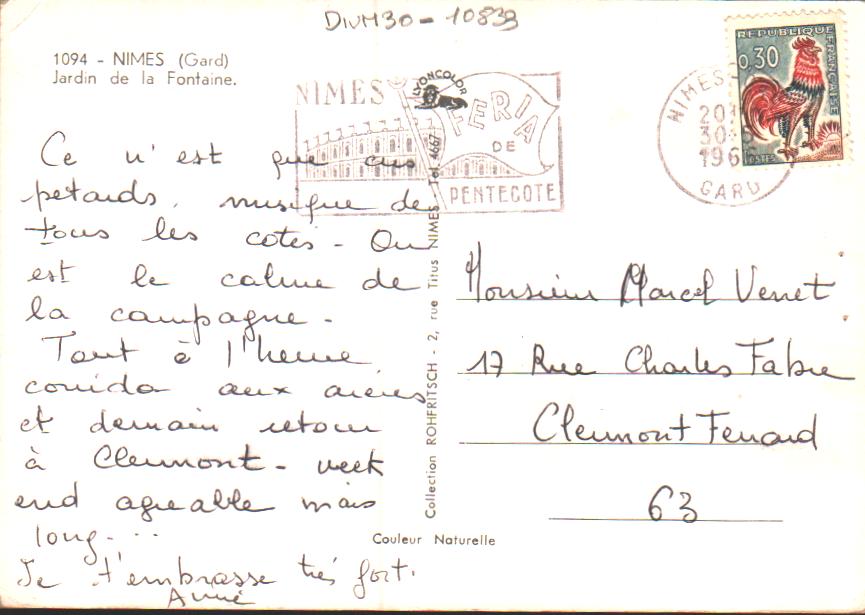 DIVM30-10839
1094 - NIMES (Gard)
Jardin de la Fontaine.
NIMES
LYONCOLOR
FERIA
DE
PENTECOTE
NIMES
30-5
196
GARD
REPUBLIQUE FRANÇAISE
0,30
POSTES
Ce n'est que cris
petards, musique de
tous les cotés - Ou
est le calme de
la campagne -
Tout à l'heure
corrida aux arènes
et demain retour
à Clermont - week
end agréable mais
long...
Je t'embrasse très fort.
Annie
Collection ROHFRITSCH - 2, rue Titus NIMES - Tél. 4667
Couleur Naturelle
Monsieur Marcel Venet
17 Rue Charles Fabre
Clermont Ferrand
63